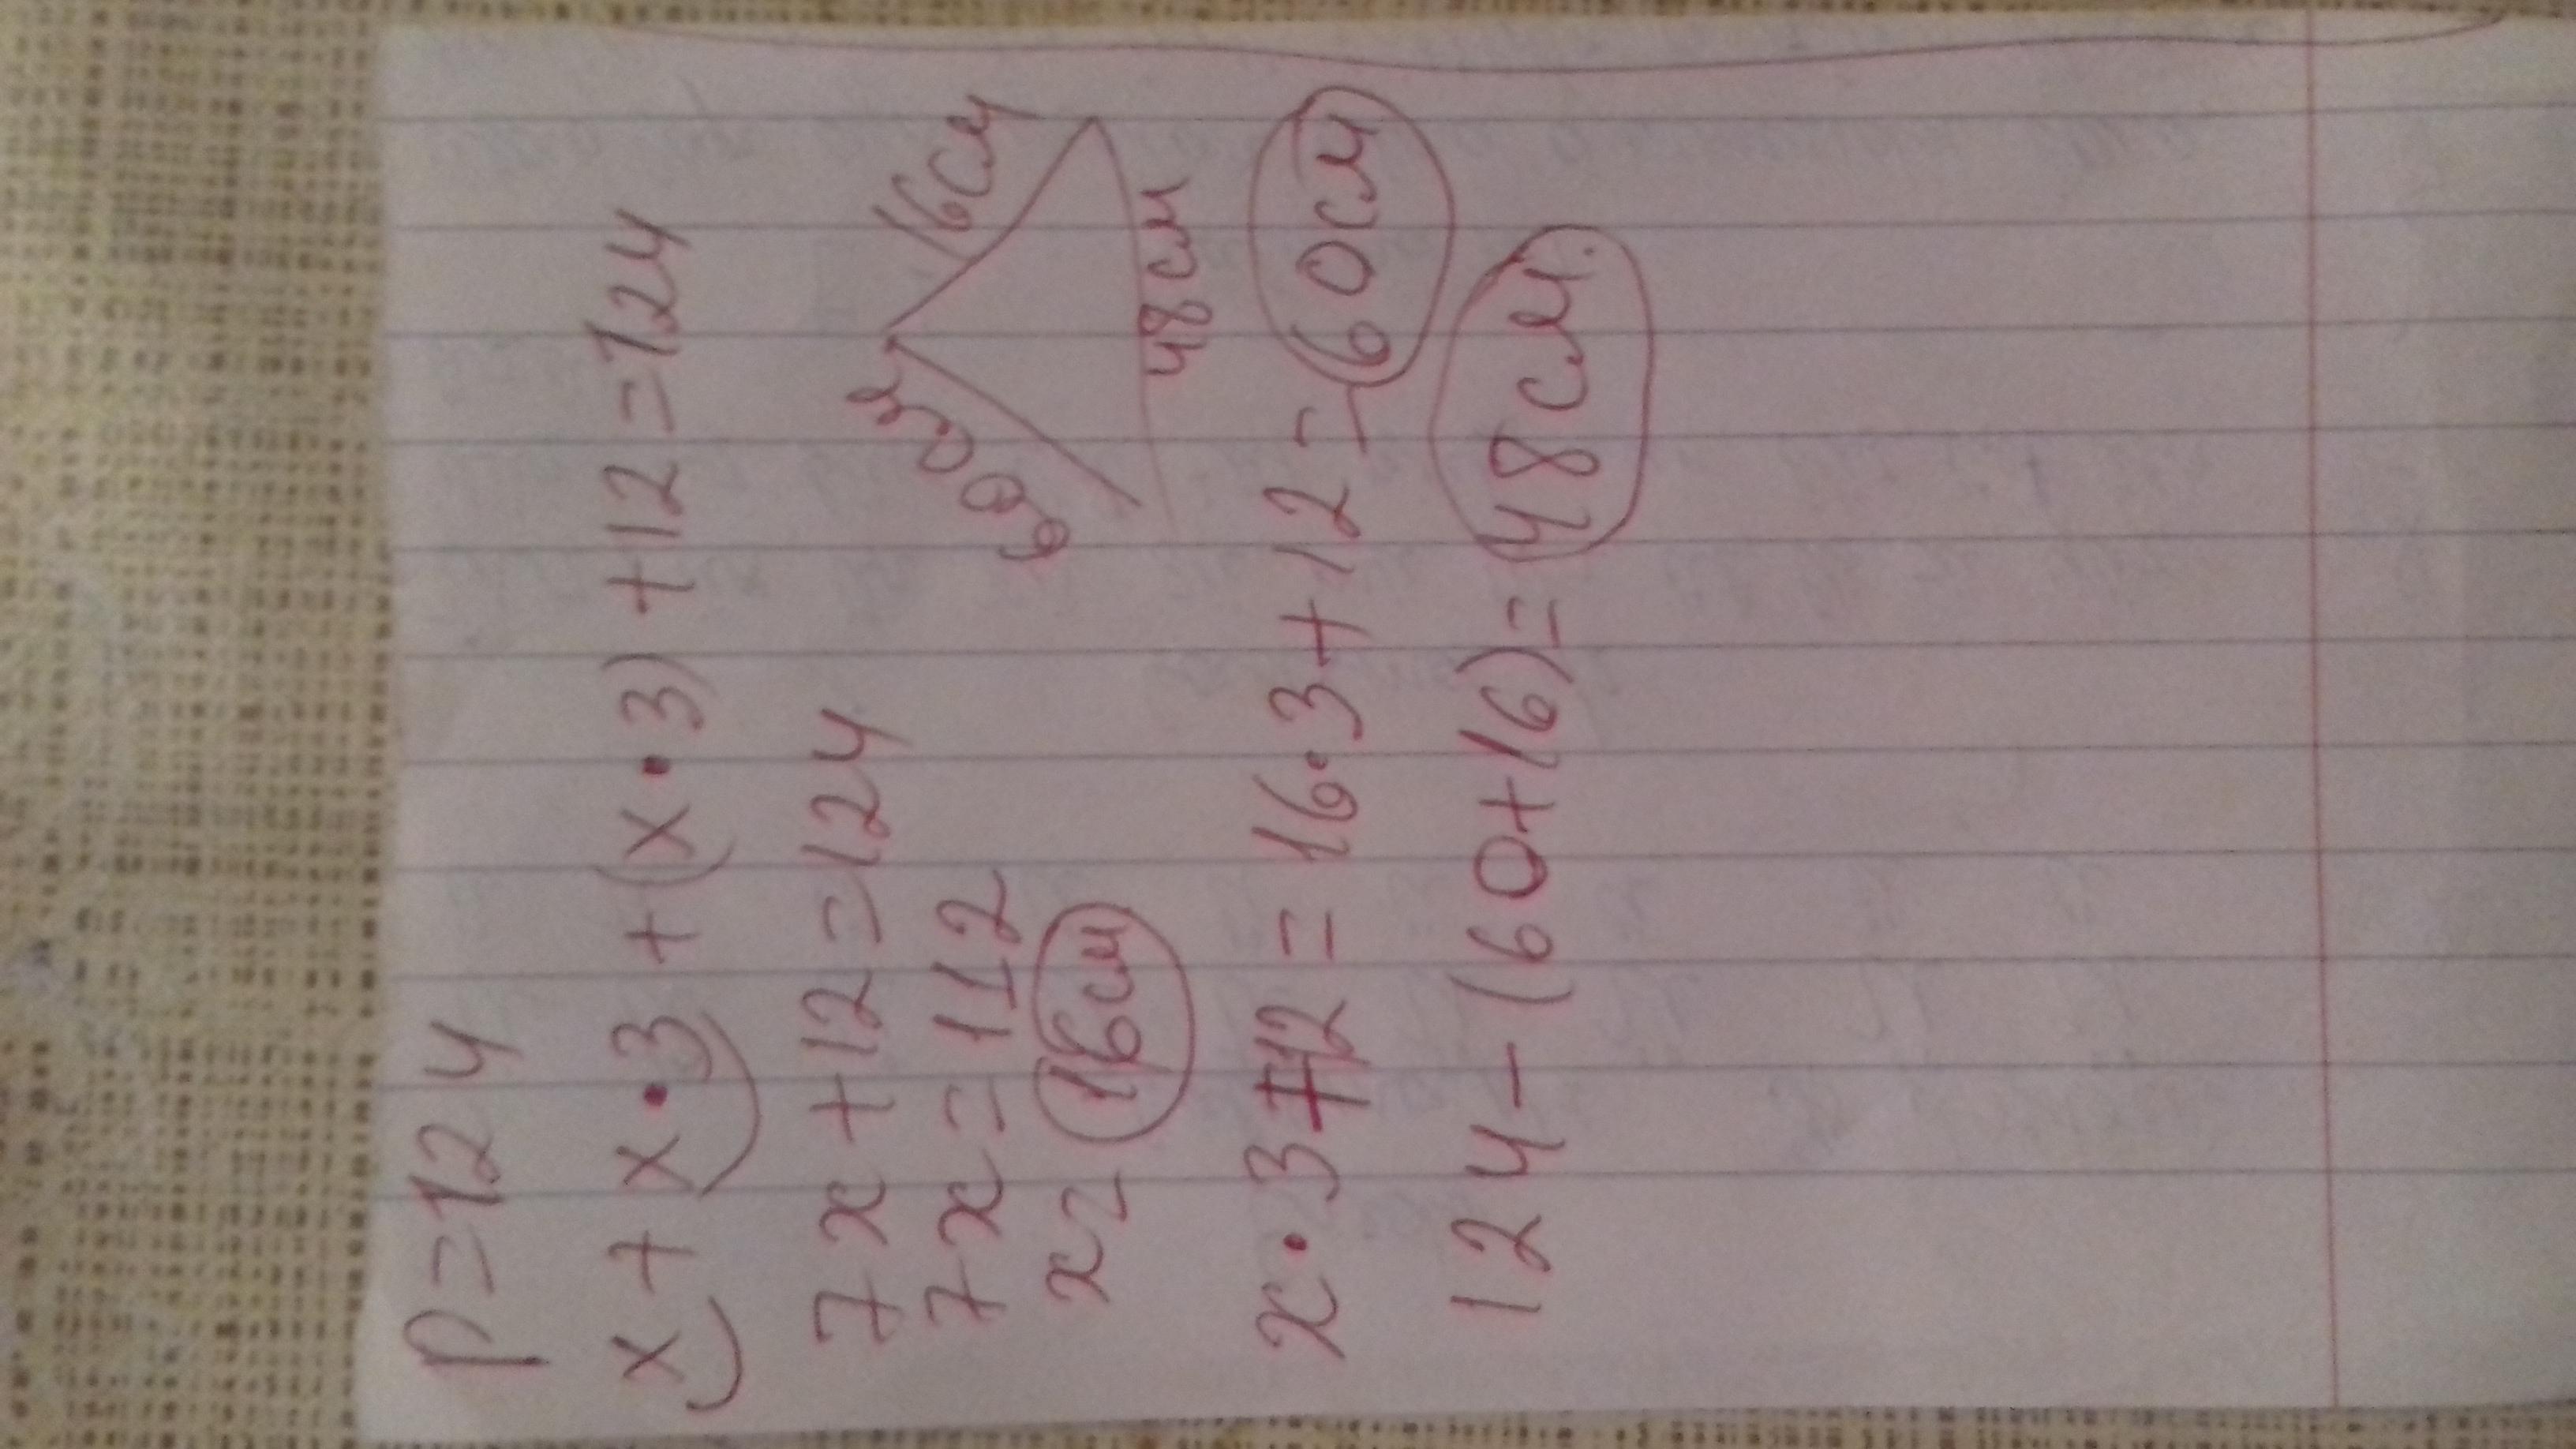 P=124
x+x•3+(x•3)+12=124
7x+12=124
7x=112
x=16см
60см
16см
48см
x•3+12=16•3+12=60см
124-(60+16)=48см.